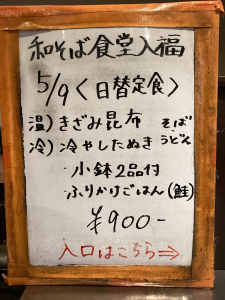 和そば食堂入福
5/9〈日替定食〉
温)きざみ昆布 そば
冷)冷やしたぬき うどん
・小鉢2品付
・ふりかけごはん(鮭)
¥900-
入口はこちら⇒